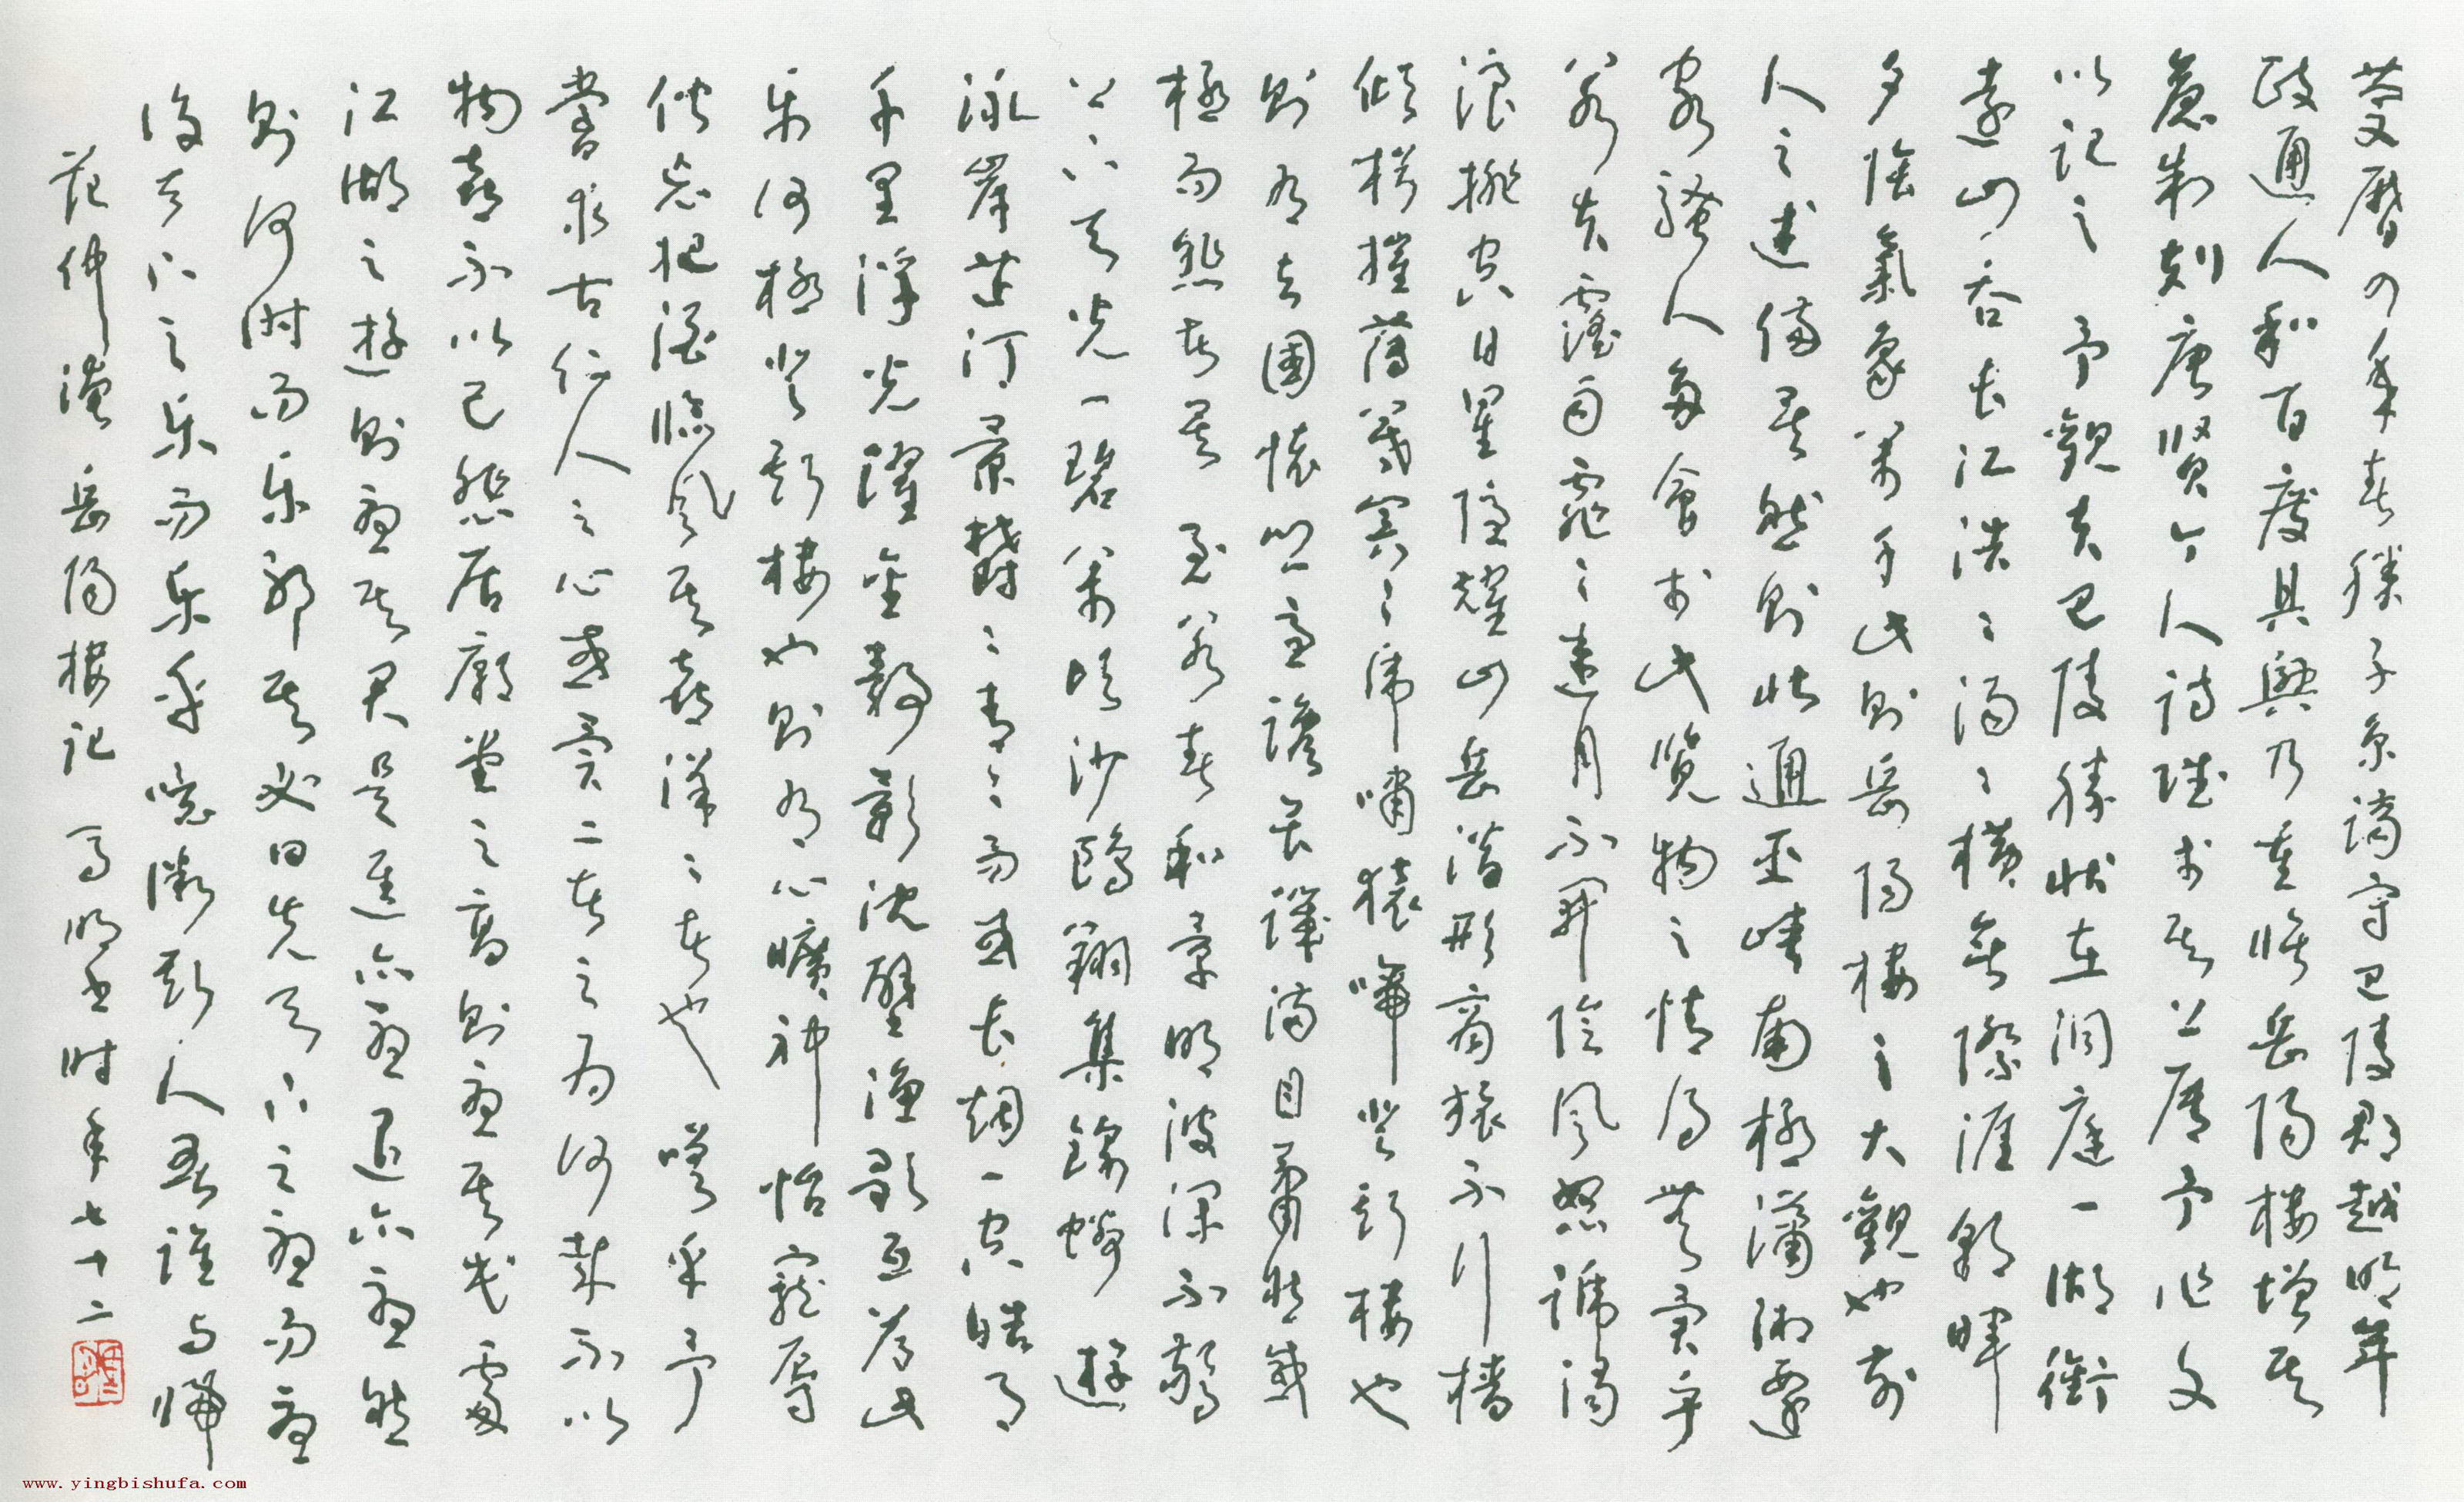 慶曆四年春滕子京謫守巴陵郡越明年
政通人和百廢具興乃重修岳陽樓增其
舊制刻唐贤今人詩賦於其上屬予作文
以記之 予觀夫巴陵勝狀在洞庭一湖銜
遠山吞長江浩〻湯〻橫無際涯朝暉
夕陰氣象萬千此則岳陽樓之大觀也前
人之述備矣然則北通巫峽南極瀟湘遷
客騷人多會於此览物之情得無異乎
若夫霪雨霏〻連月不開陰風怒號濁
浪排空日星隱耀山岳潛形商旅不行檣
傾楫摧薄暮冥〻虎嘯猿啼登斯樓也
則有去國懷鄉憂讒畏譏滿目蕭然感
極而悲者矣 至若春和景明波瀾不驚
上下天光一碧萬頃沙鷗翔集錦鱗游
泳岸芷汀蘭鬱〻青〻而或長烟一空皓月
千里浮光躍金靜影沈璧漁歌互答此
樂何極登斯樓也則有心曠神怡寵辱
偕忘把酒臨風其喜洋〻者也 嗟乎予
嘗求古仁人之心或異二者之為何哉不以
物喜不以己悲居廟堂之高則憂其民處
江湖之遠則憂其君是進亦憂退亦憂然
則何時而樂耶其必曰先天下之憂而憂
後天下之樂而樂乎噫微斯人吾誰與歸
范仲淹 岳陽樓記 书时年七十二
www.yingbishufa.com